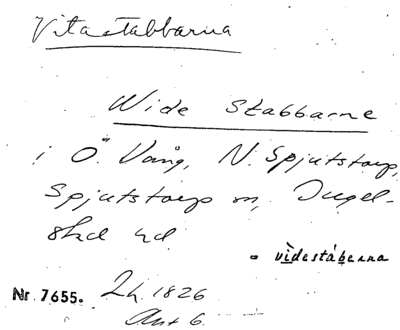 Vitastabbarna
Wide Stabbarne
i Ö. Vång, N. Spjutstorp,
Spjutstorp sn, Ingel-
stad hd
vìdestáb̲erna
Nr 7655. Lh. 1826
Akt 6.